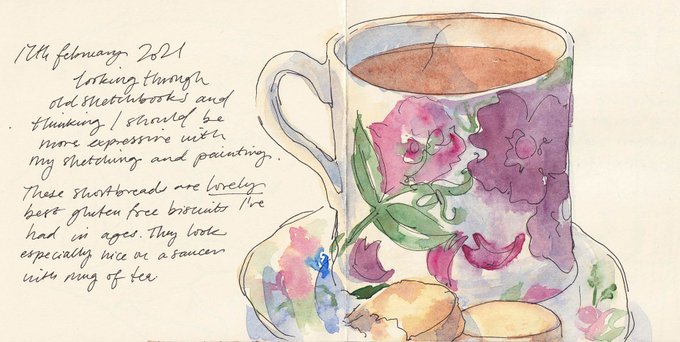 17th february 2021
looking through
old sketchbooks and
thinking I should be
more expressive with
my sketching and painting.
These shortbreads are lovely
best gluten free biscuits I've
had in ages. They look
especially nice on a saucer
with mug of tea